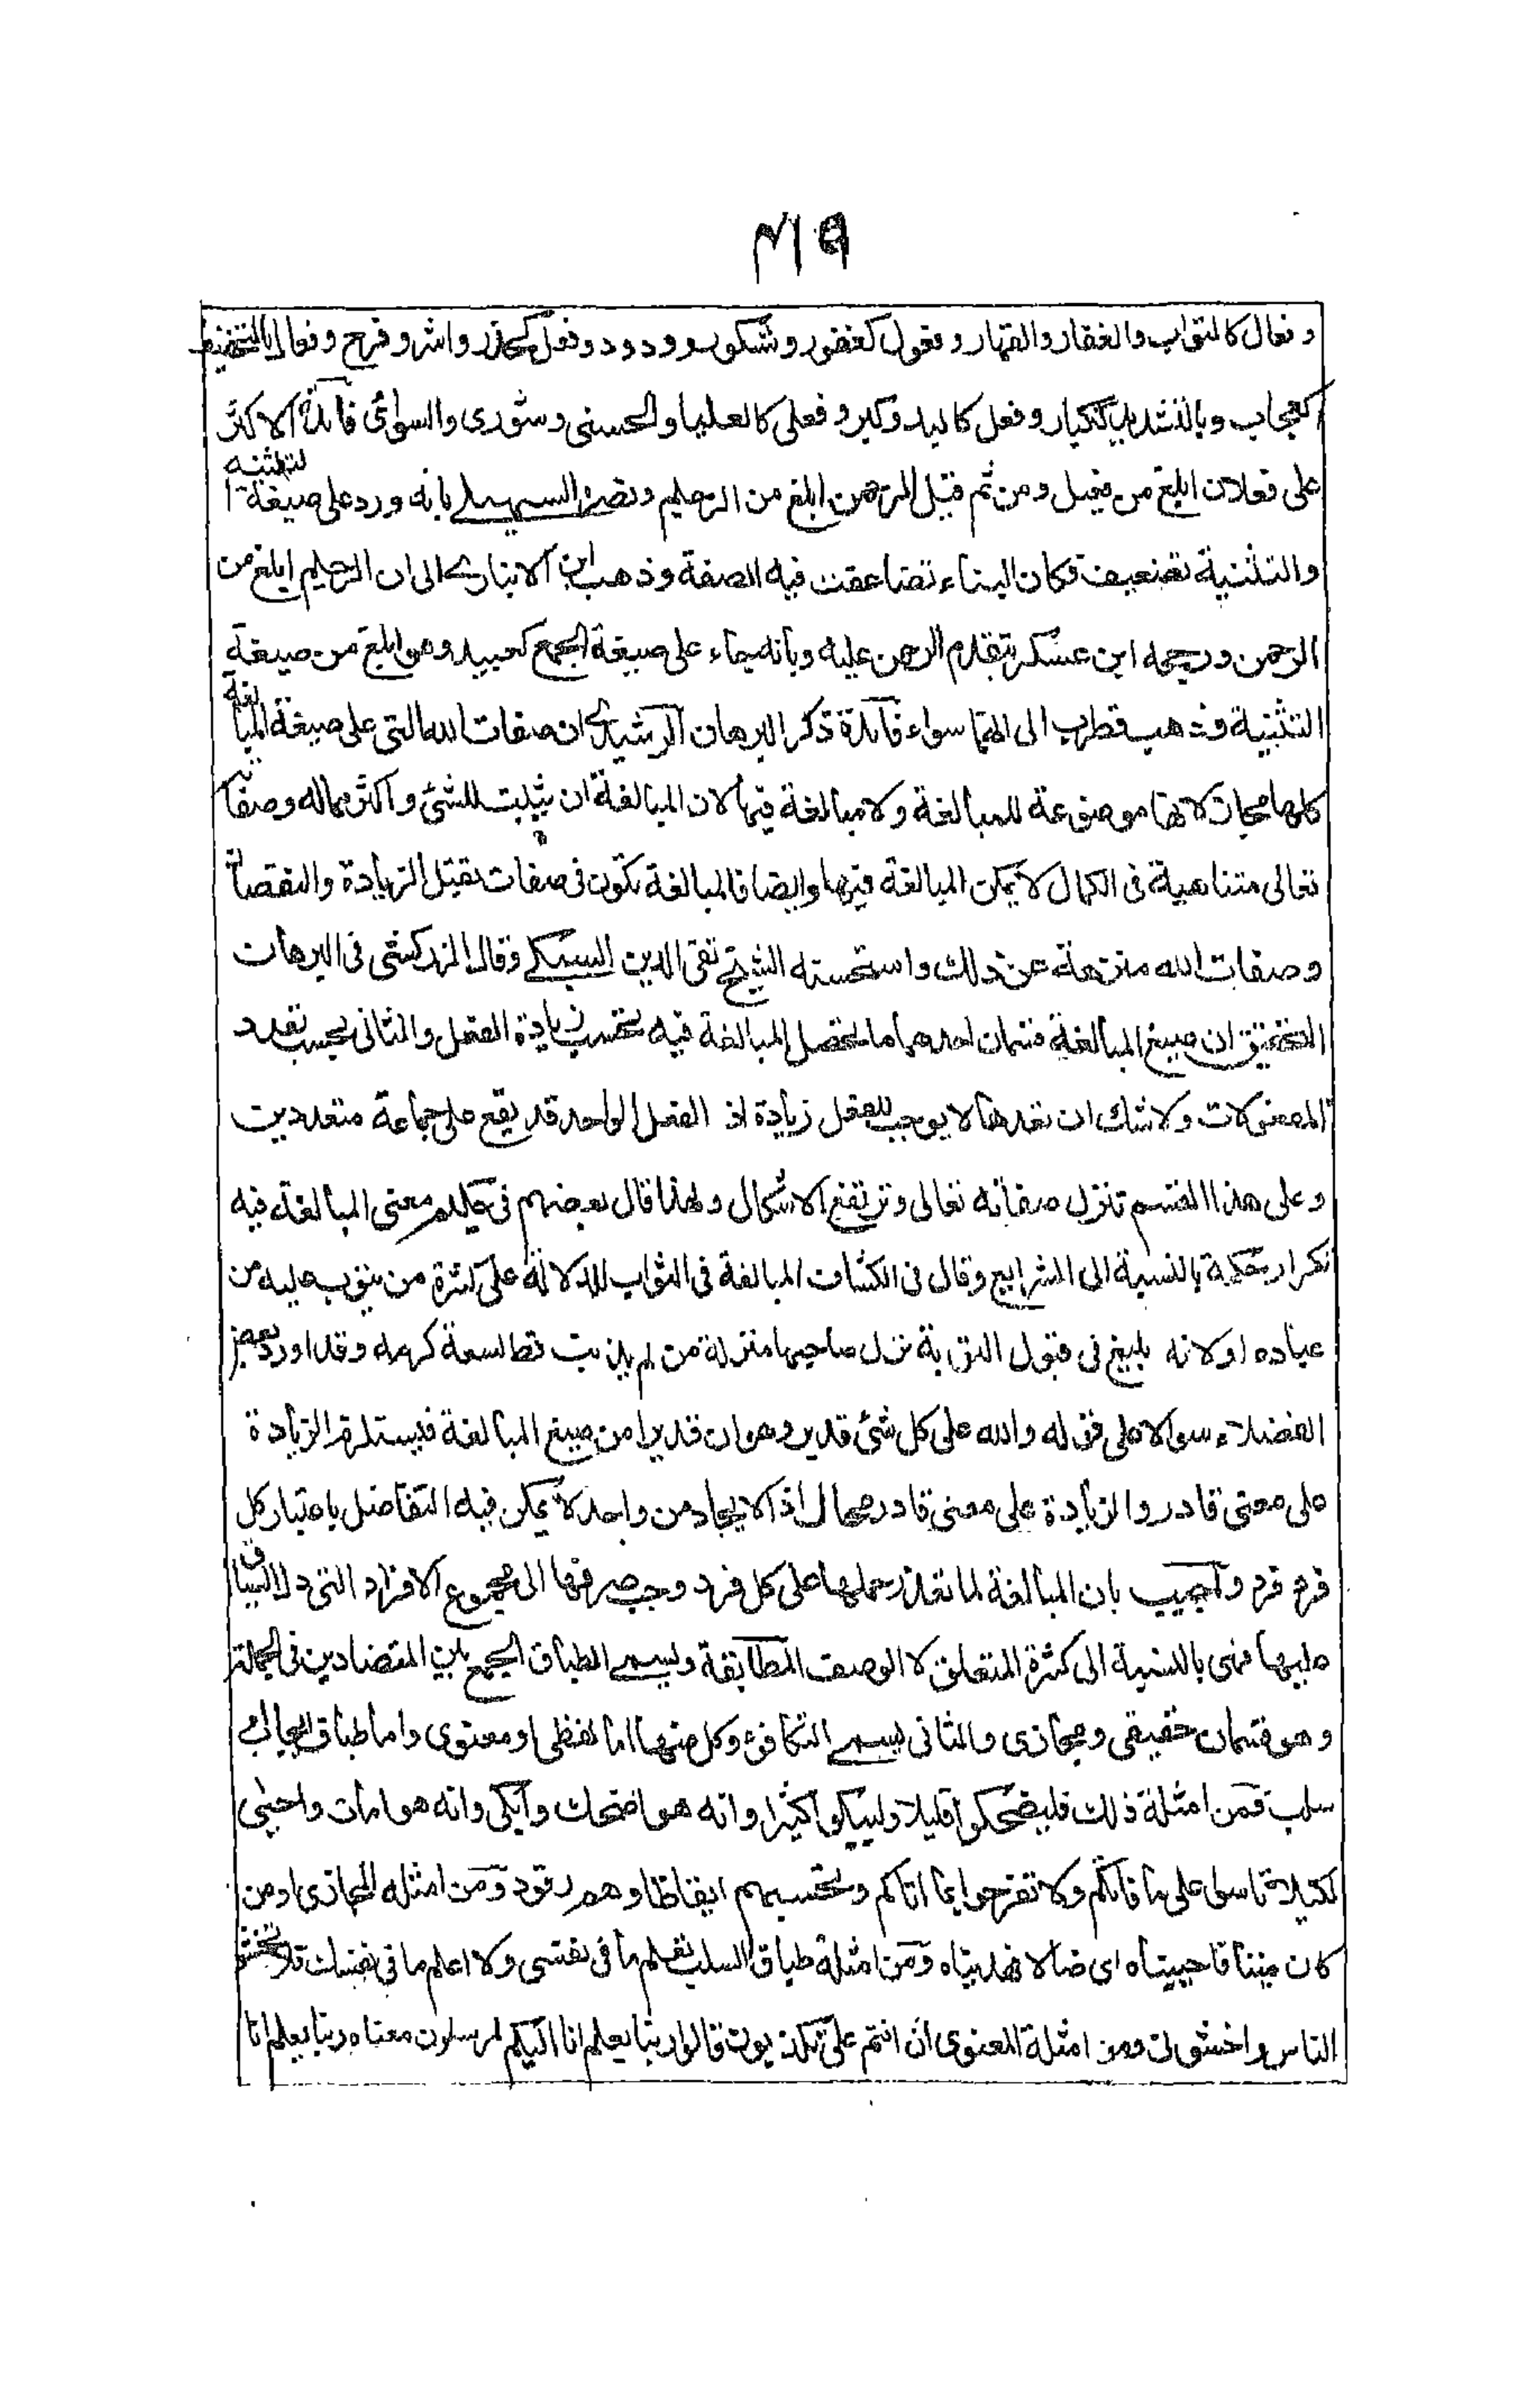 ٣١٩
وفعال كالتواب والغفار والقهار وفعول كغفور وشكور وودود وفعل كحذر واشر وفرح وفعال بالتخفيف
كعجاب وبالتشديد ككبار وفعل كالبد وكبر وفعلى كالعليا والحسنى وشورى والسوآى فائدة الاكثر
على فعلان ابلغ من فعيل ومن ثم قيل الرحمن ابلغ من الرحيم ونصره السهيلى بانه ورد على صيغة التثنية
والتثنية تضعيف فكان البناء تضاعفت فيه الصفة وذهب ابن الانبارى الى ان الرحيم ابلغ من
الرحمن ورجحه ابن عسكر بتقدم الرحمن عليه وبانه جاء على صيغة الجمع كعبيد وهو ابلغ من صيغة
التثنية وذهب قطرب الى انهما سواء فائدة ذكر البرهان الرشيدى ان صفات الله التى على صيغة المبالغة
كلها مجاز لانها موضوعة للمبالغة ولا مبالغة فيها لان المبالغة ان يثبت للشئ واكثر مماله وصفاته
تعالى متناهية فى الكمال لا يمكن المبالغة فيها وايضا فالمبالغة تكون فى صفات تقبل الزيادة والنقصان
وصفات الله منزهة عن ذلك واستحسنه الشيخ تقى الدين السبكى وقال الزركشى فى البرهان
التحقيق ان صيغ المبالغة قسمان احدهما ما تحصل المبالغة فيه بحسب زيادة الفعل والثانى بحسب تعدد
المفعولات ولا شك ان تعددها لا يوجب للفعل زيادة اذ الفعل الواحد قد يقع على جماعة متعددين
وعلى هذا القسم تنزل صفاته تعالى وترتفع الاشكال ولهذا قال بعضهم فى حكيم معنى المبالغة فيه
تكرار حكمه بالنسبة الى الشرايع وقال فى الكشاف المبالغة فى التواب للدلالة على كثرة من يتوب عليه من
عباده او لانه بليغ فى قبول التوبة نزل صاحبها منزلة من لم يذنب قط لسعة كرمه وقد اورد بعض
الفضلاء سوالا على قوله والله على كل شئ قدير وهو ان قديرا من صيغ المبالغة فيستلزم الزيادة
على معنى قادر والزيادة على معنى قادر محال اذ الايجاد من واحد لا يمكن فيه التفاضل باعتبار كل
فرد فرد واجيب بان المبالغة لما تعذر حملها على كل فرد وجب صرفها الى مجموع الافراد التى دل السياق
عليها فهى بالنسبة الى كثرة المتعلق لا الوصف المطابقة ويسمى الطباق الجمع بين المتضادين فى الجملة
وهو قسمان حقيقى ومجازى والثانى يسمى التكافؤ وكل منهما اما لفظى او معنوى واما طباق ايجاب
سلب فمن امثلة ذلك فليضحكوا قليلا وليبكوا كثيرا وانه هو اضحك وابكى وانه هو امات واحيى
لكيلا تاسوا على ما فاتكم ولا تفرحوا بما اتاكم وتحسبهم ايقاظا وهم رقود ومن امثله المجازى اومن
كان ميتا فاحييناه اى ضالا فهديناه ومن امثلة طباق السلب تعلم ما فى نفسى ولا اعلم ما فى نفسك فلا تخشوا
الناس واخشون ومن امثلة المعنوى ان انتم الا تكذبون قالوا ربنا يعلم انا اليكم لمرسلون معناه ربنا يعلم انا